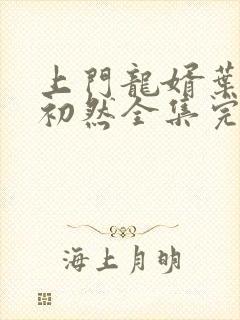 上門龍婿葉
初然全集完
海上月明